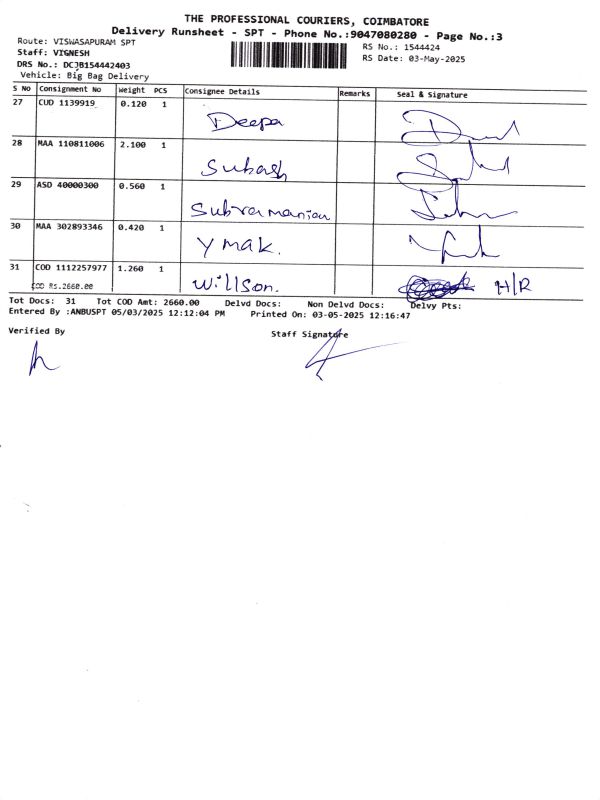 THE PROFESSIONAL COURIERS, COIMBATORE
Delivery Runsheet - SPT - Phone No.:9047080280 - Page No.:3
Route: VISWASAPURAM SPT
RS No.: 1544424
Staff: VIGNESH
RS Date: 03-May-2025
DRS No.: DCJB154442403
Vehicle: Big Bag Delivery
S No Consignment No Weight PCS Consignee Details Remarks Seal & Signature
27 CUD 1139919 0.120 1
Deepa
28 MAA 110811006 2.100 1
Subash
29 ASD 40000300 0.560 1
Subramanian
30 MAA 302893346 0.420 1
Y mak.
31 COD 1112257977 1.260 1
COD Rs.2660.00 Willson. H/R
Tot Docs: 31 Tot COD Amt: 2660.00 Delvd Docs: Non Delvd Docs: Delvy Pts:
Entered By :ANBUSPT 05/03/2025 12:12:04 PM Printed On: 03-05-2025 12:16:47
Verified By Staff Signature